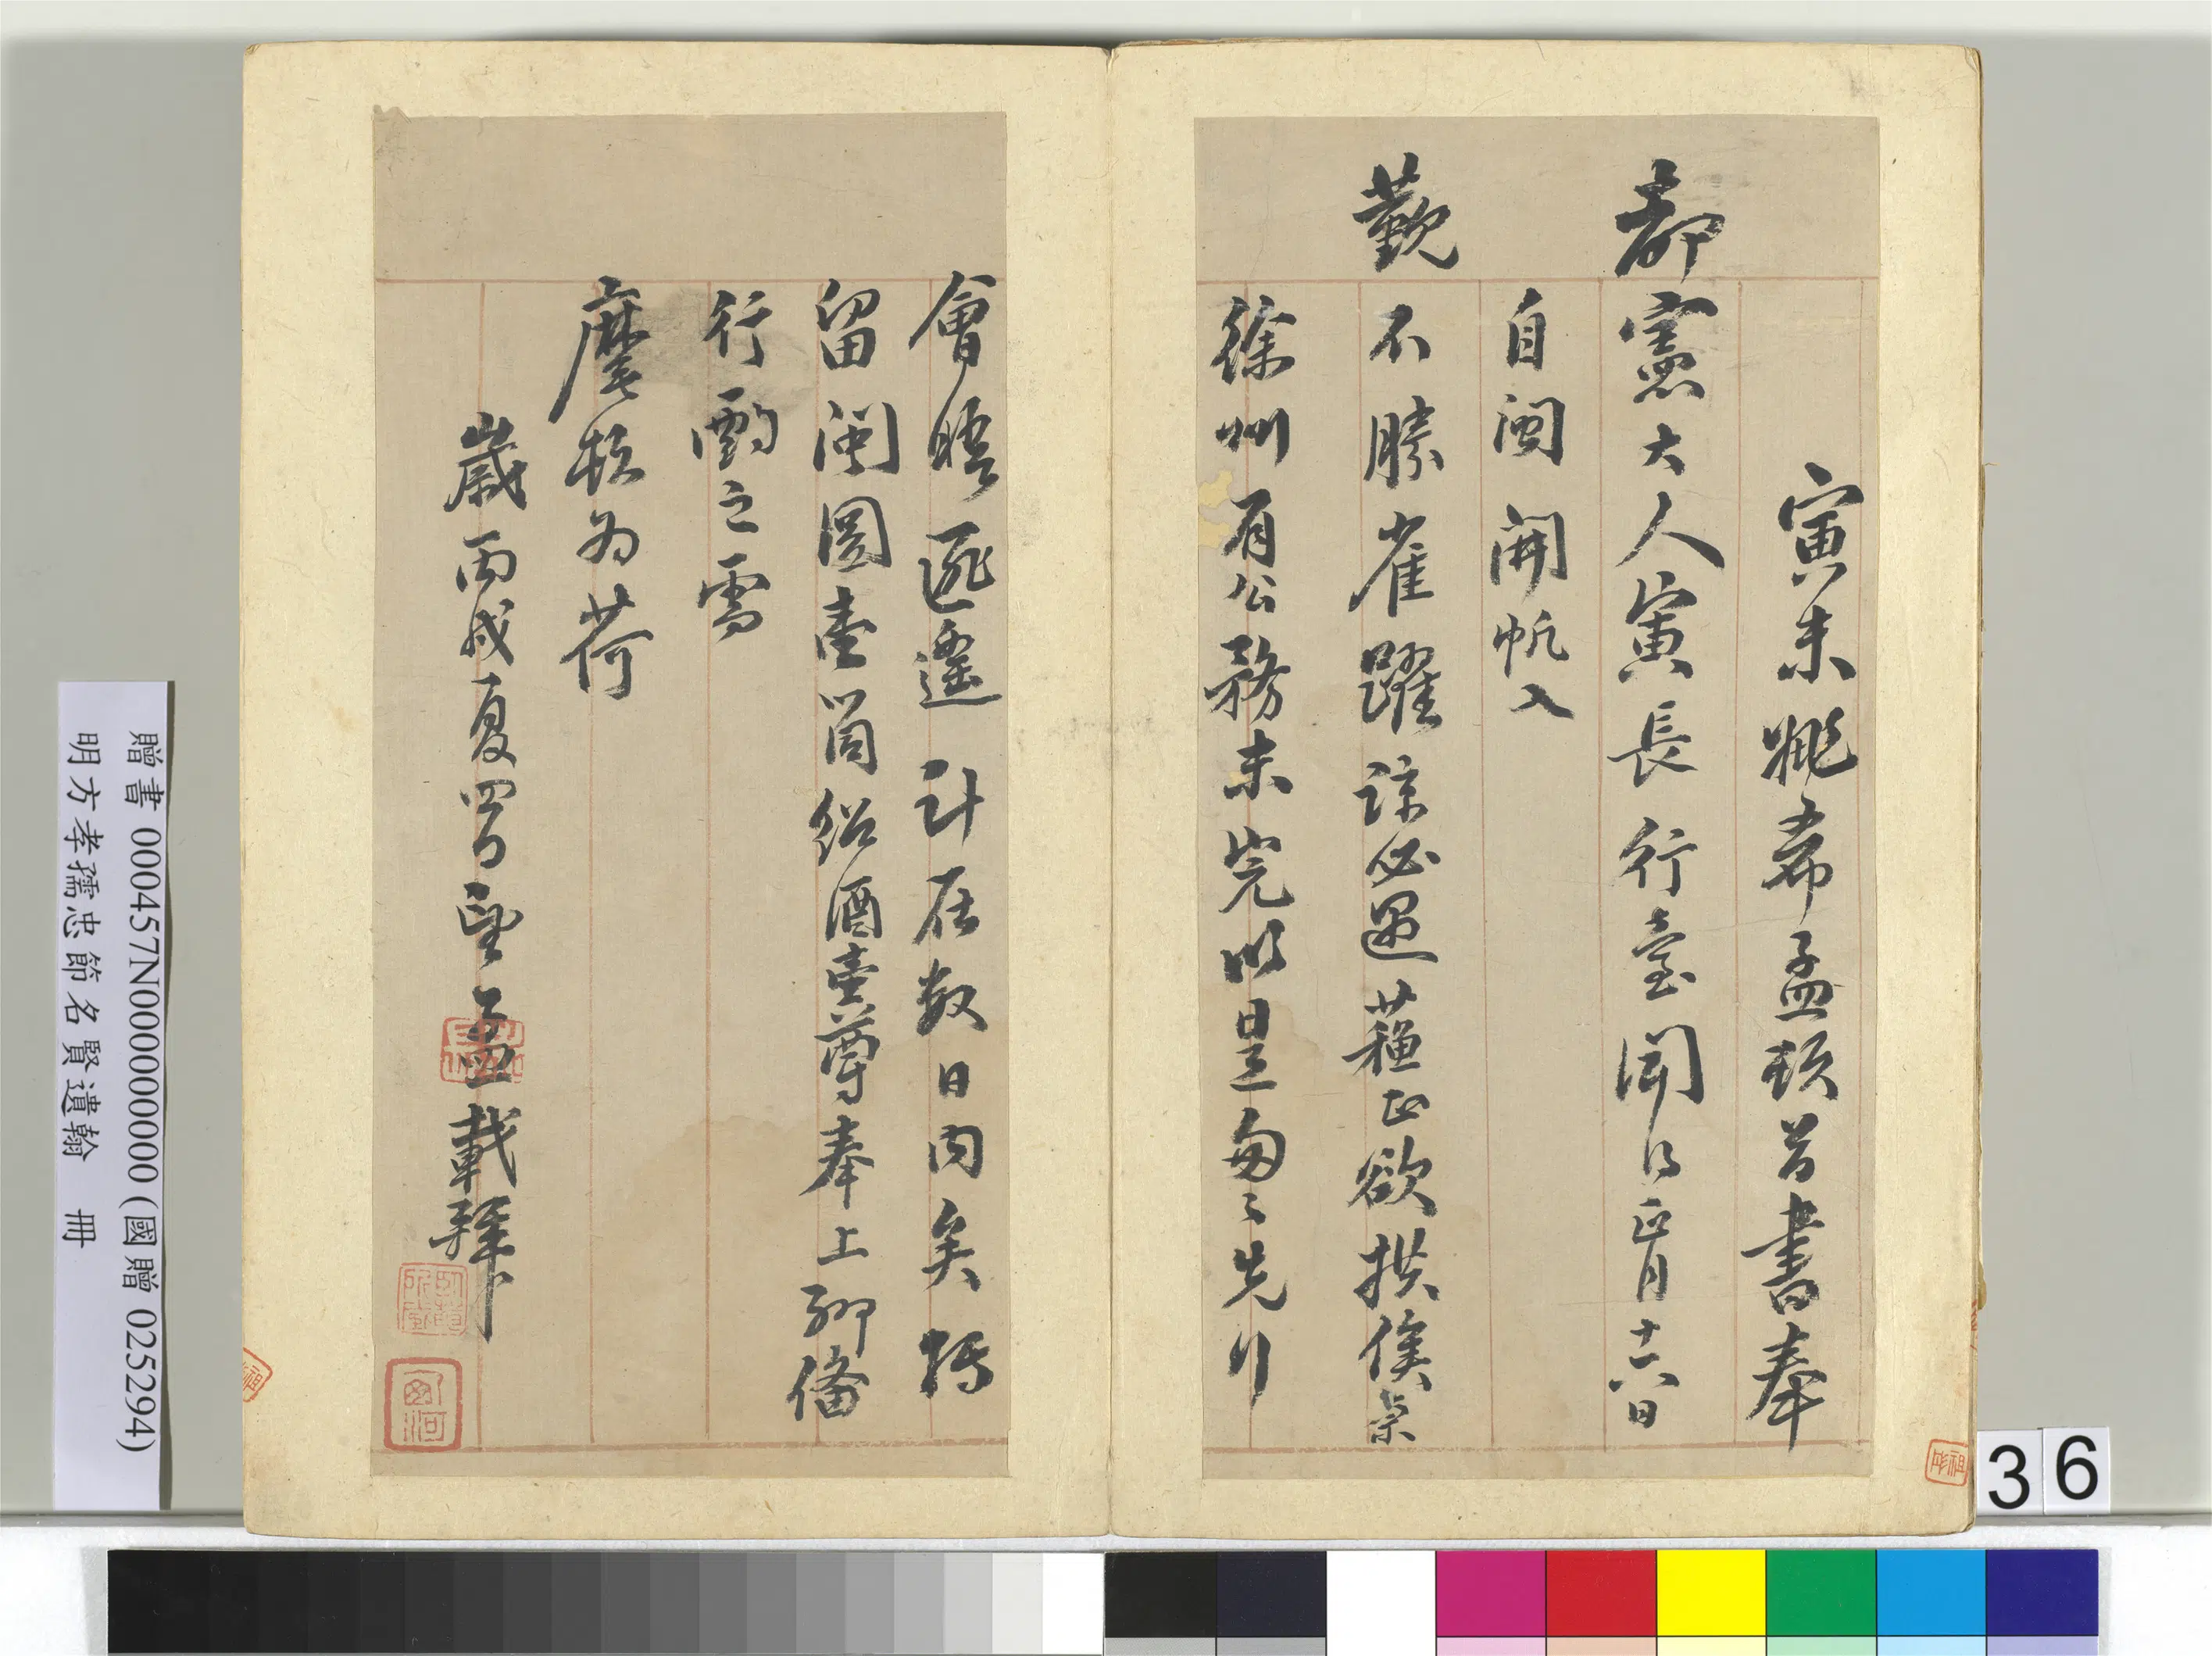 寅末姚希孟頓首書奉
都憲大人寅長行臺聞得正月十六日
自閩開帆入
觀不勝雀躍諒必過蘇正欲拱候奈
徐州有公務未完以是匆匆先行
會晤匪遙計在數日內矣
留閩圖壹筒紹酒壹尊奉上聊備
行酌之需
麾頓為荷
歲丙戌夏四月望孟載拜
贈書 000457N000000000 (國贈 025294)
明方孝孺忠節名賢遺翰 冊
36